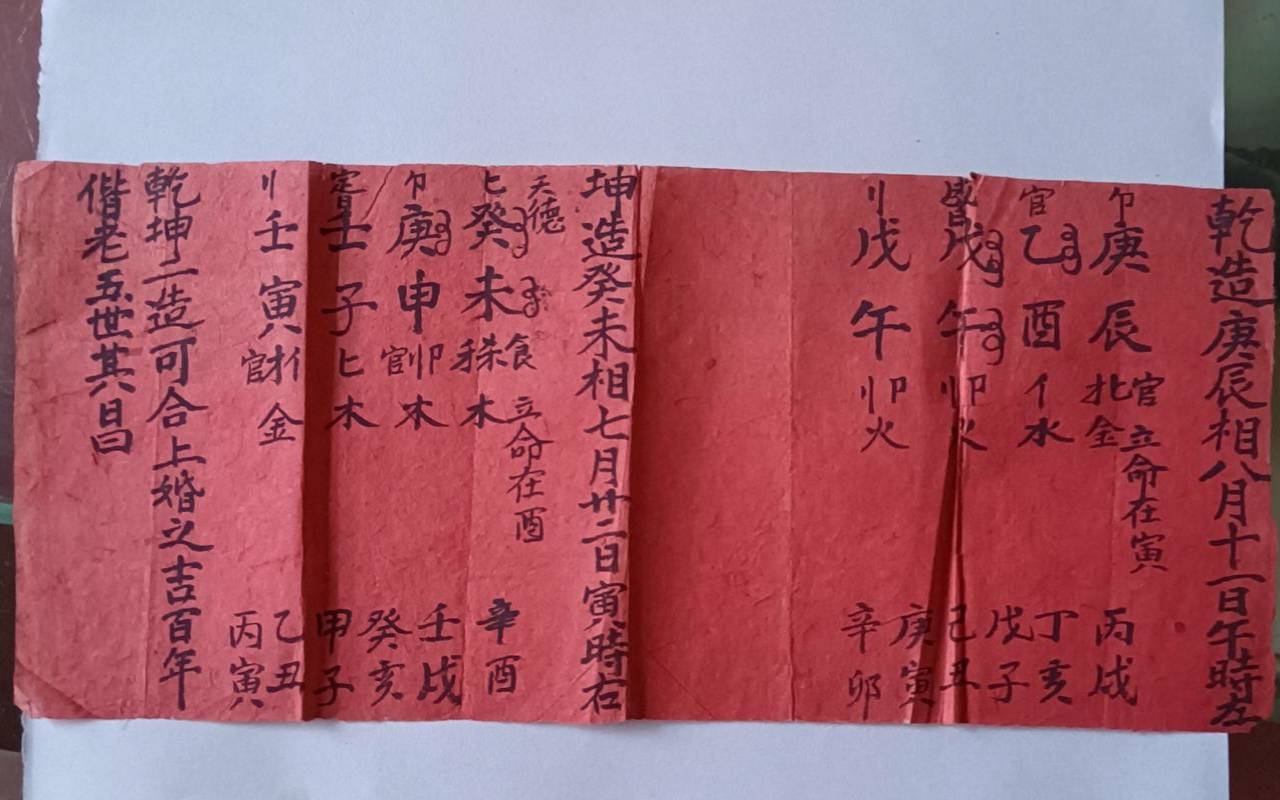 乾造庚辰相八月十一日午時左
庚辰
官
金
立命在寅
官
乙酉
水
戊午
火
戊午
火
丙戌
丁亥
戊子
己丑
庚寅
辛卯
坤造癸未相七月廿二日寅時右
天德
癸未
食
木
立命在酉
庚申
官
木
壬子
木
壬寅
官
金
辛酉
壬戌
癸亥
甲子
乙丑
丙寅
乾坤二造可合上婚之吉百年
偕老五世其昌